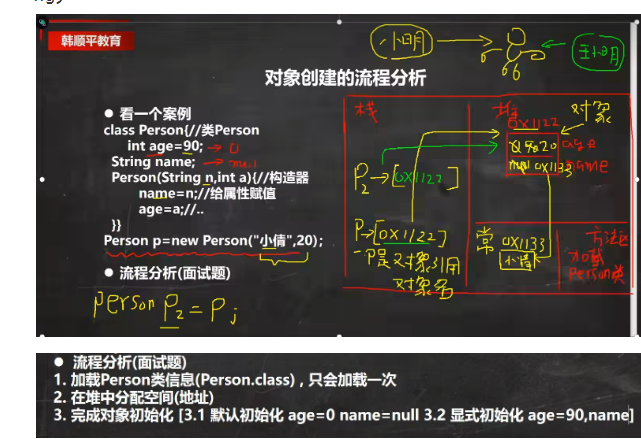 韩顺平教育
小明
王小明
对象创建的流程分析
● 看一个案例
class Person{//类Person
int age=90; → 0
String name; → null
Person(String n,int a){//构造器
name=n;//给属性赋值
age=a;//..
}}
Person p=new Person("小倩",20);
● 流程分析(面试题)
Person P2 = P;
栈
P2→[0x1122]
P→[0x1122]
P是对象引用
对象名
堆
对象
0x1122
0 90 20 age
null 0x1133 name
常
0x1133
小倩
方法区
加载
Person类
● 流程分析(面试题)
1. 加载Person类信息(Person.class)，只会加载一次
2. 在堆中分配空间(地址)
3. 完成对象初始化 [3.1 默认初始化 age=0 name=null 3.2 显式初始化 age=90,name]